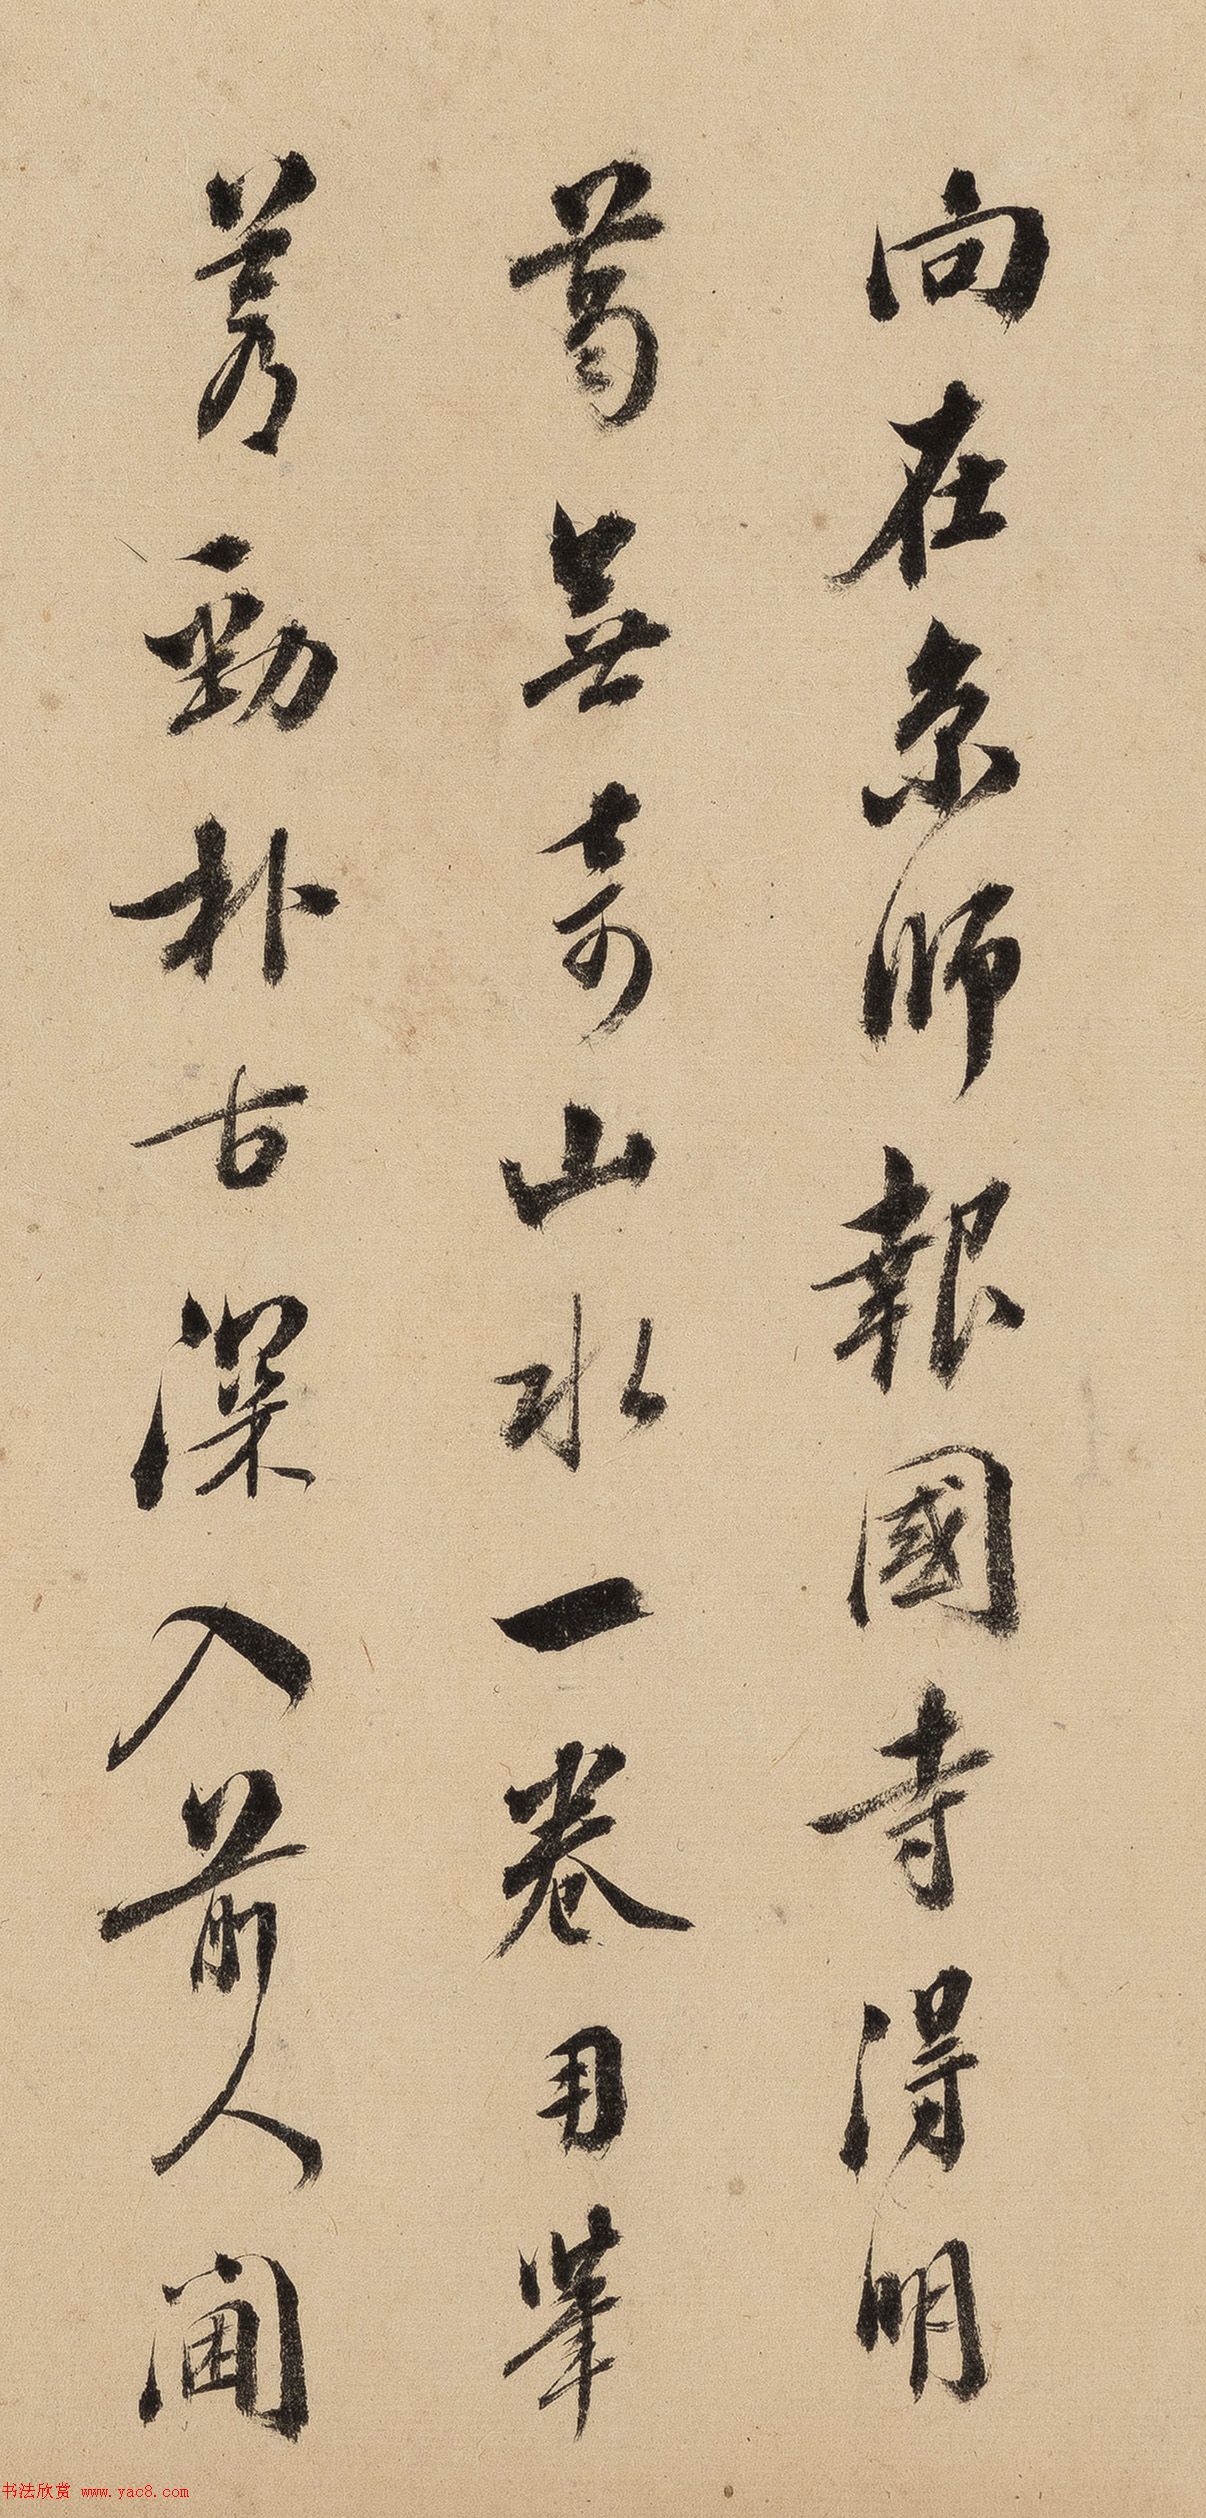 向在京師報國寺得明
葛無奇山水一卷用筆
蒼勁朴古深入前人閫
书法欣赏 www.yac8.com